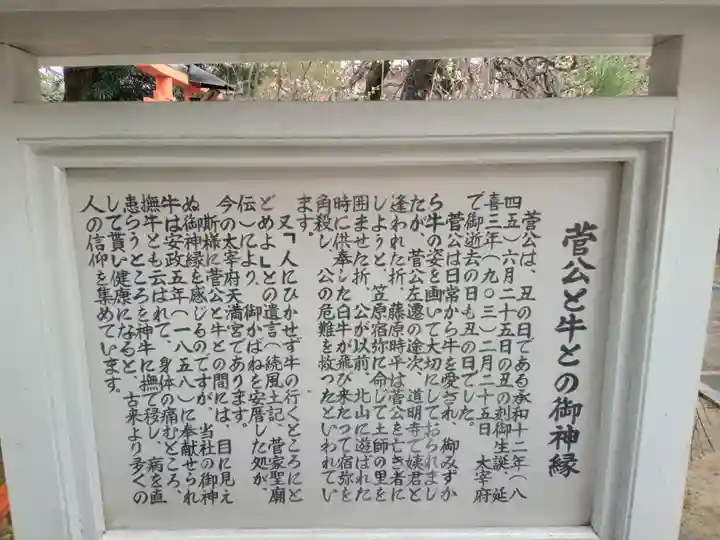 菅公と牛との御神縁
菅公は、丑の日である承和十二年（八
四五）六月二十五日の丑の刻御生誕、延
喜三年（九〇三）二月二十五日　太宰府
で御逝去の日も丑の日でした。
菅公は日常から牛を愛され、御みずか
ら牛の姿を画いて大切にしておられまし
たが、菅公左遷の途次、道明寺で姨君と
逢われた折、藤原時平は菅公を亡き者に
しようと、笠原宿弥に命じて土師の里を
囲ませた折、公が以前、北山に遊ばれた
時に供奉した白牛が飛び来たって宿弥を
角殺し、公の危難を救ったといわれてい
ます。
又「人にひかせず牛の行くところにと
どめよ」との遺言（続風土記、菅家聖廟
伝）により、御かばねを安厝した処が、
今の太宰府天満宮であります。
斯様に菅公と牛との間には、目に見え
ぬ御神縁を感じるのですが、当社の御神
牛は安政五年（一八五八）に奉献せられ
撫牛とも云はれて、身体の痛むところ、
患らうところを神牛に撫で移し、病を直
して貰い健康になると、古来より多くの
人の信仰を集めています。